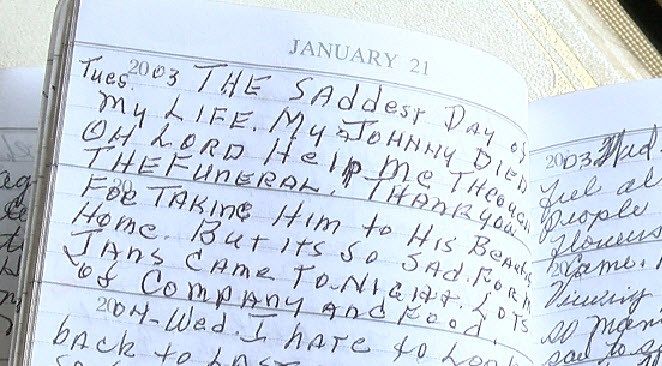 JANUARY 21
Tues. 2003 THE SAddest DAY of
my LIFE. My JOHNNY DIED
OH LORD HeLP me THROUGH
THE FUNERAL. THANK you
FOR TAKING HIM to HIS BeAutiful
Home. But ITS SO SAd. FOR m
JANS CAme TO-NIGHT. LOTS
of Company And Food.
2004-Wed. I hate to Look
back to LAST
2003 Wed
feel al
people
flowers
came.
Viewing
so man
sad to s